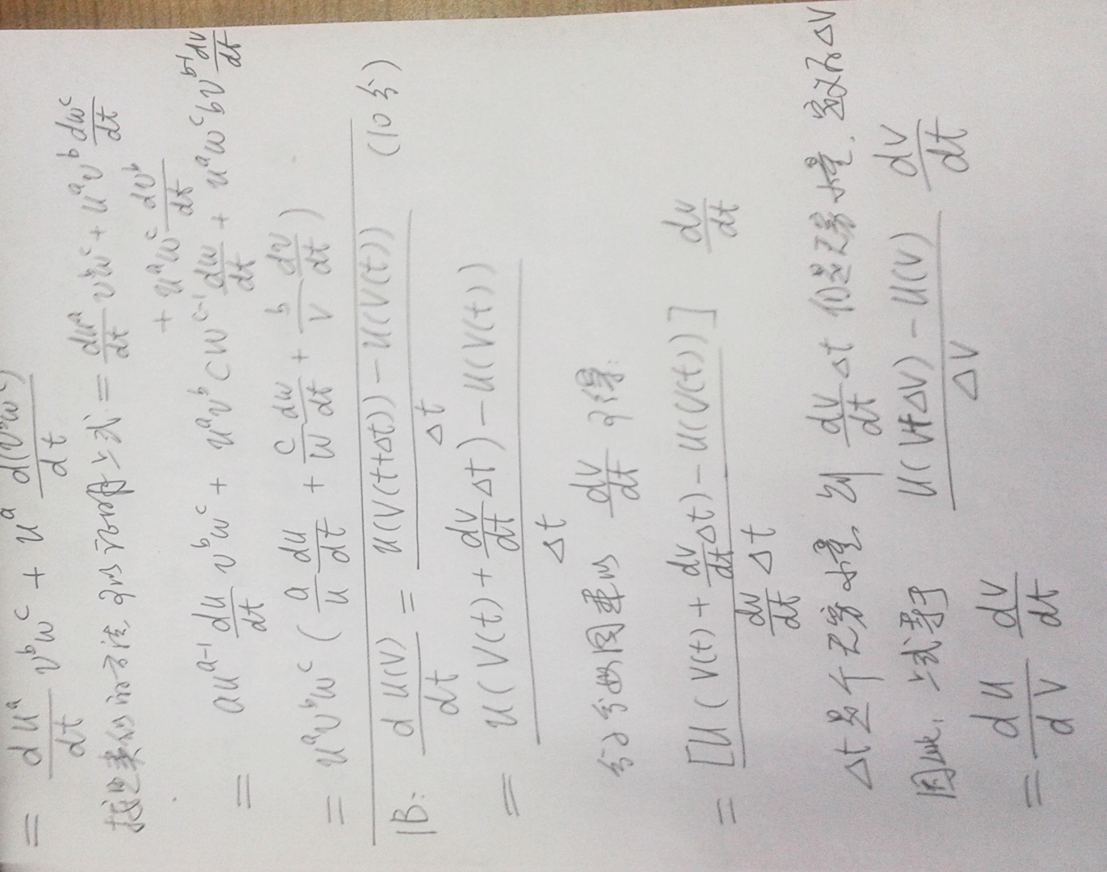 = \frac{du^a}{dt} v^b w^c + u^a \frac{d(v^b w^c)}{dt}
按照类似的方法可以证明上式 = \frac{du^a}{dt} v^b w^c + u^a v^b \frac{dw^c}{dt}
+ u^a w^c \frac{dv^b}{dt}
= a u^{a-1} \frac{du}{dt} v^b w^c + u^a v^b c w^{c-1} \frac{dw}{dt} + u^a w^c b v^{b-1} \frac{dv}{dt}
= u^a v^b w^c ( \frac{a}{u} \frac{du}{dt} + \frac{c}{w} \frac{dw}{dt} + \frac{b}{v} \frac{dv}{dt} )
1B: \frac{d u(v)}{dt} = \frac{u(v(t+Δt)) - u(v(t))}{Δt} (10分)
= \frac{u(v(t) + \frac{dv}{dt} Δt) - u(v(t))}{Δt}
分子分母同乘以 \frac{dv}{dt} 可得:
= \frac{[u(v(t) + \frac{dv}{dt} Δt) - u(v(t))]}{\frac{dv}{dt} Δt} \frac{dv}{dt}
Δt是个无穷小量, 则 \frac{dv}{dt} Δt 仍是无穷小量, 定义为ΔV
因此, 上式等于 \frac{u(v+Δv) - u(v)}{Δv} \frac{dv}{dt}
= \frac{du}{dv} \frac{dv}{dt}